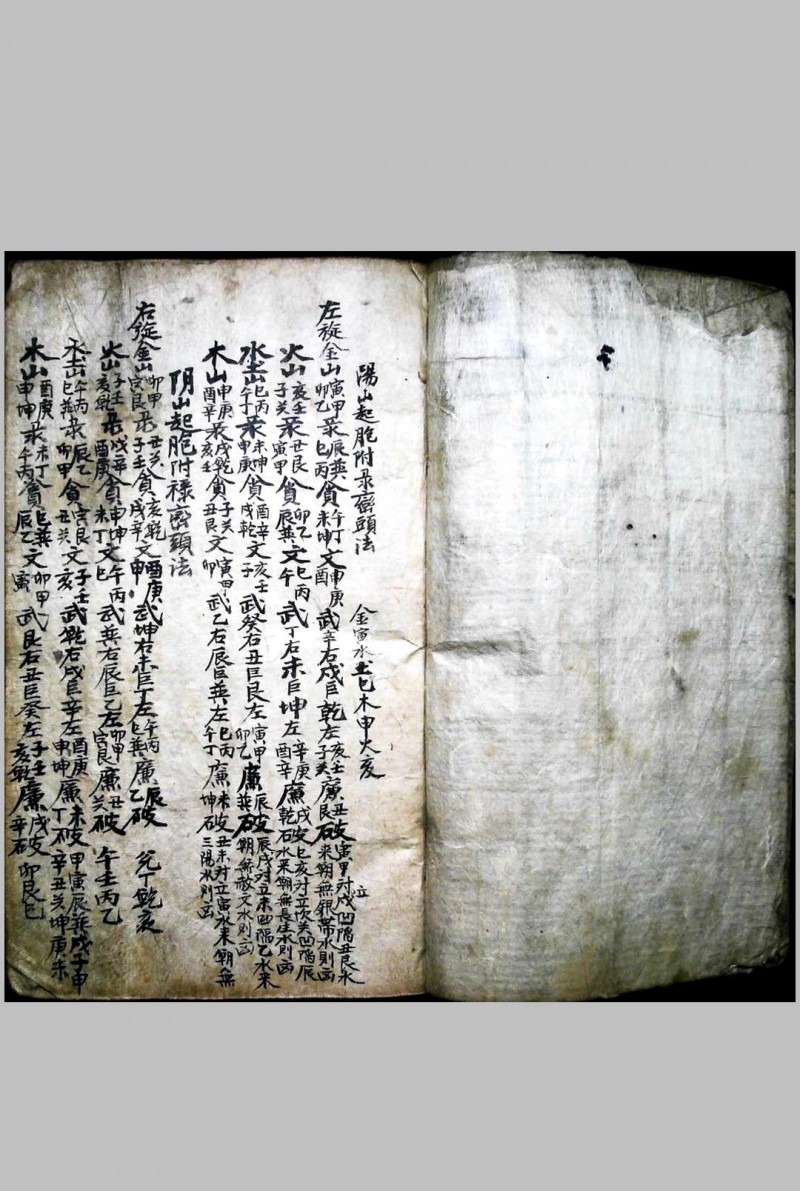 陽山起胞附录巒頭法
金寅水土巳木申火亥
左旋金山寅甲卯乙录辰巽巳丙貪午丁未坤文申庚酉武辛右戌巨乾左亥壬子癸廉丑艮破寅甲対立戌凹陷丑艮水來朝無銀帶水則凶
火山亥壬子癸录丑艮寅甲貪卯乙辰巽文巳丙午武丁右未巨坤左辛庚酉辛廉戌乾破巳亥対立坎癸凹陷辰石水來朝無長生水則凶
水土山巳丙午丁录未坤申庚貪酉辛戌乾文亥壬子武癸右丑巨艮左寅甲卯乙廉辰巽破辰戌対立未凹陷乙水來朝無敵文水則凶
木山申庚酉辛录戌乾亥壬貪子癸丑艮文寅甲卯武乙右辰巨巽左巳丙午丁廉未坤破丑未対立寅水來朝無三陽水則凶
阴山起胞附禄巒頭法
右旋金山卯甲寅艮录丑癸子壬貪亥乾戌辛文酉庚申武坤右未巨丁左午丙巳巽廉辰乙破 兊丁乾亥
火山子壬亥乾录戌辛酉庚貪申坤未丁文午丙巳武巽右辰巨乙左卯甲寅艮廉丑癸破 午壬丙乙
水土山午丙巳巽录辰乙卯甲貪寅艮丑癸文子壬亥武乾右戌巨辛左酉庚申坤廉未丁破甲寅辰巽戌子申辛丑癸坤庚未
木山酉庚申坤录未丁午丙貪巳巽辰乙文卯甲寅武艮右丑巨癸左子壬亥乾廉戌辛破 卯艮巳